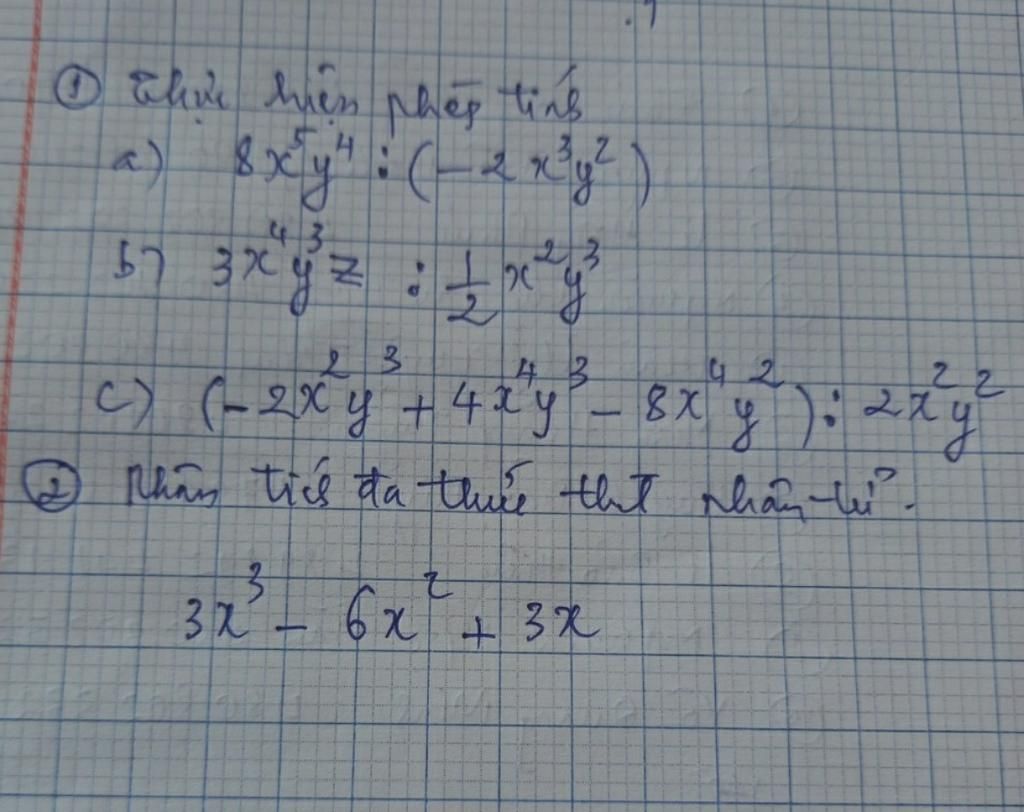 ① Thực hiện phép tính
a) 8x⁵y⁴ : (-2x³y²)
b) 3x⁴y³z : 1/2 x²y³
c) (-2x²y³ + 4x⁴y³ - 8x⁴y²) : 2x²y²
② Phân tích đa thức tht nhân tử.
3x³ - 6x² + 3x